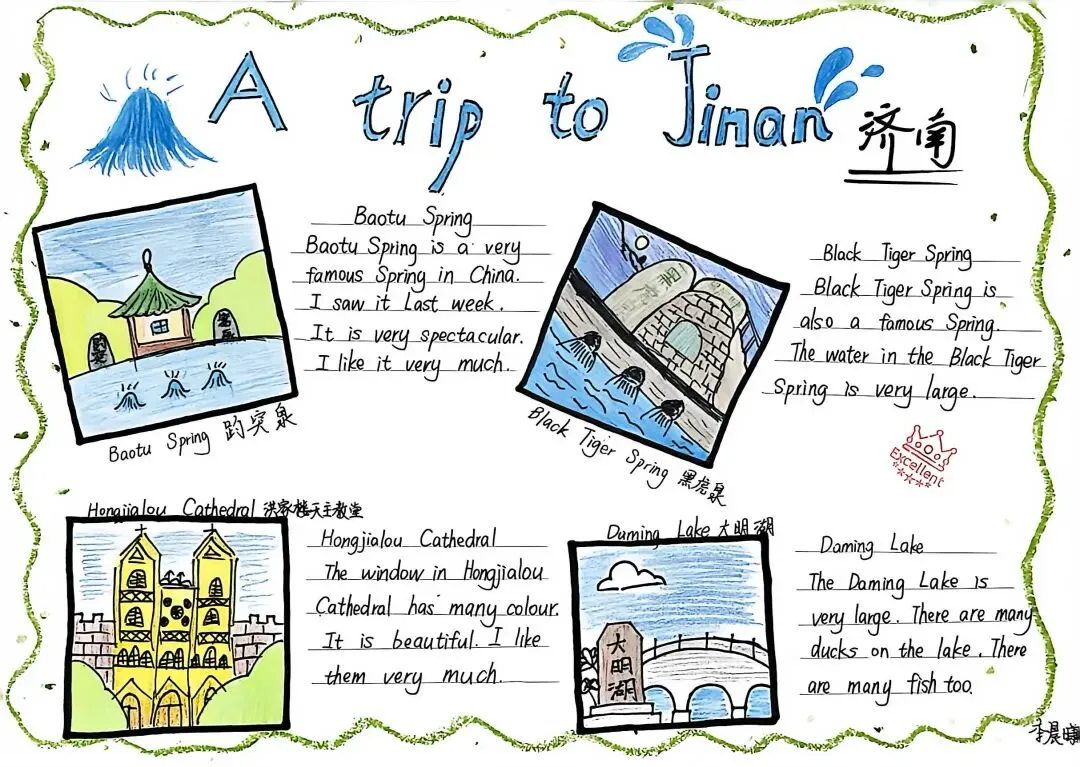 A trip to Jinan
济南
Baotu Spring
Baotu Spring is a very
famous Spring in China.
I saw it Last week.
It is very spectacular.
I like it very much.
趵突
Baotu Spring 趵突泉
Black Tiger Spring
Black Tiger Spring is
also a famous Spring.
The water in the Black Tiger
Spring is very large.
Black Tiger Spring 黑虎泉
Excellent
Hongjialou Cathedral 洪家楼天主教堂
Hongjialou Cathedral
The window in Hongjialou
Cathedral has many colour.
It is beautiful. I like
them very much.
Daming Lake 大明湖
大明湖
Daming Lake
The Daming Lake is
very large. There are many
ducks on the lake. There
are many fish too.
李晨